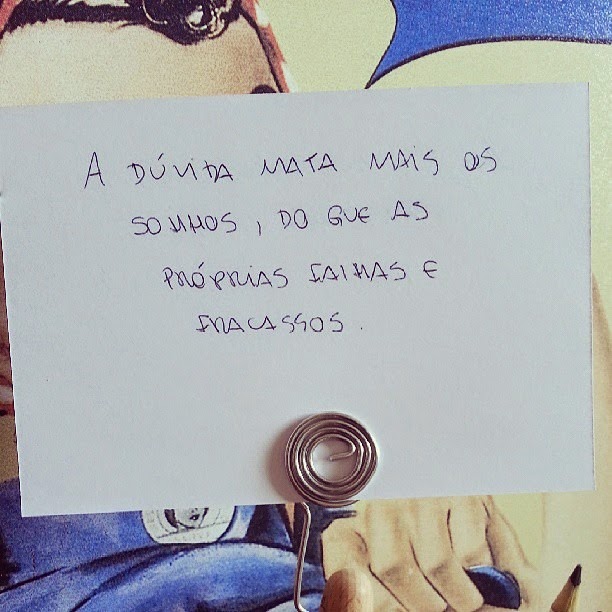 A DÚVIDA MATA MAIS OS
SONHOS, DO QUE AS
PRÓPRIAS FALHAS E
FRACASSOS.